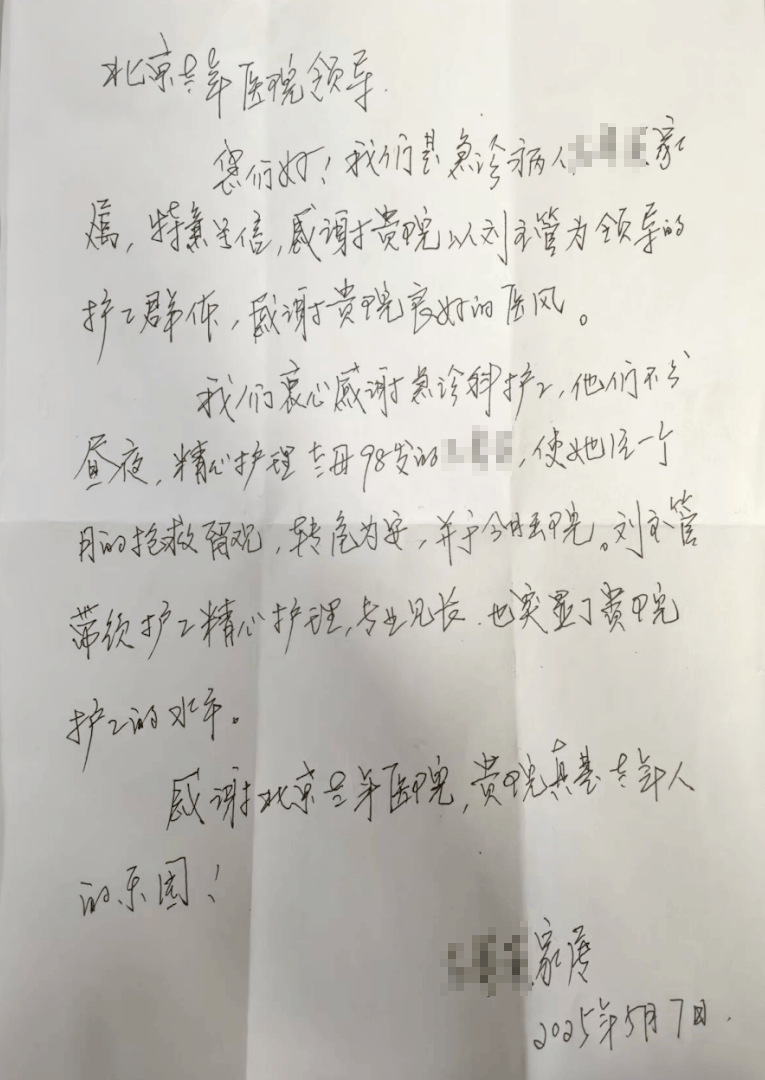 北京老年医院领导.
您们好！我们是急诊病人 家
属，特意写信，感谢贵院以刘主管为领导的
护工群体，感谢贵院良好的医风。
我们衷心感谢急诊科护工，他们不分
昼夜，精心护理老母98岁的 ，使她近一个
月的抢救留观，转危为安，并于今日出院。刘主管
带领护工精心护理，专业见长.也突显了贵院
护工的水平。
感谢北京老年医院，贵院真是老年人
的乐园！
家属
2025年5月7日.